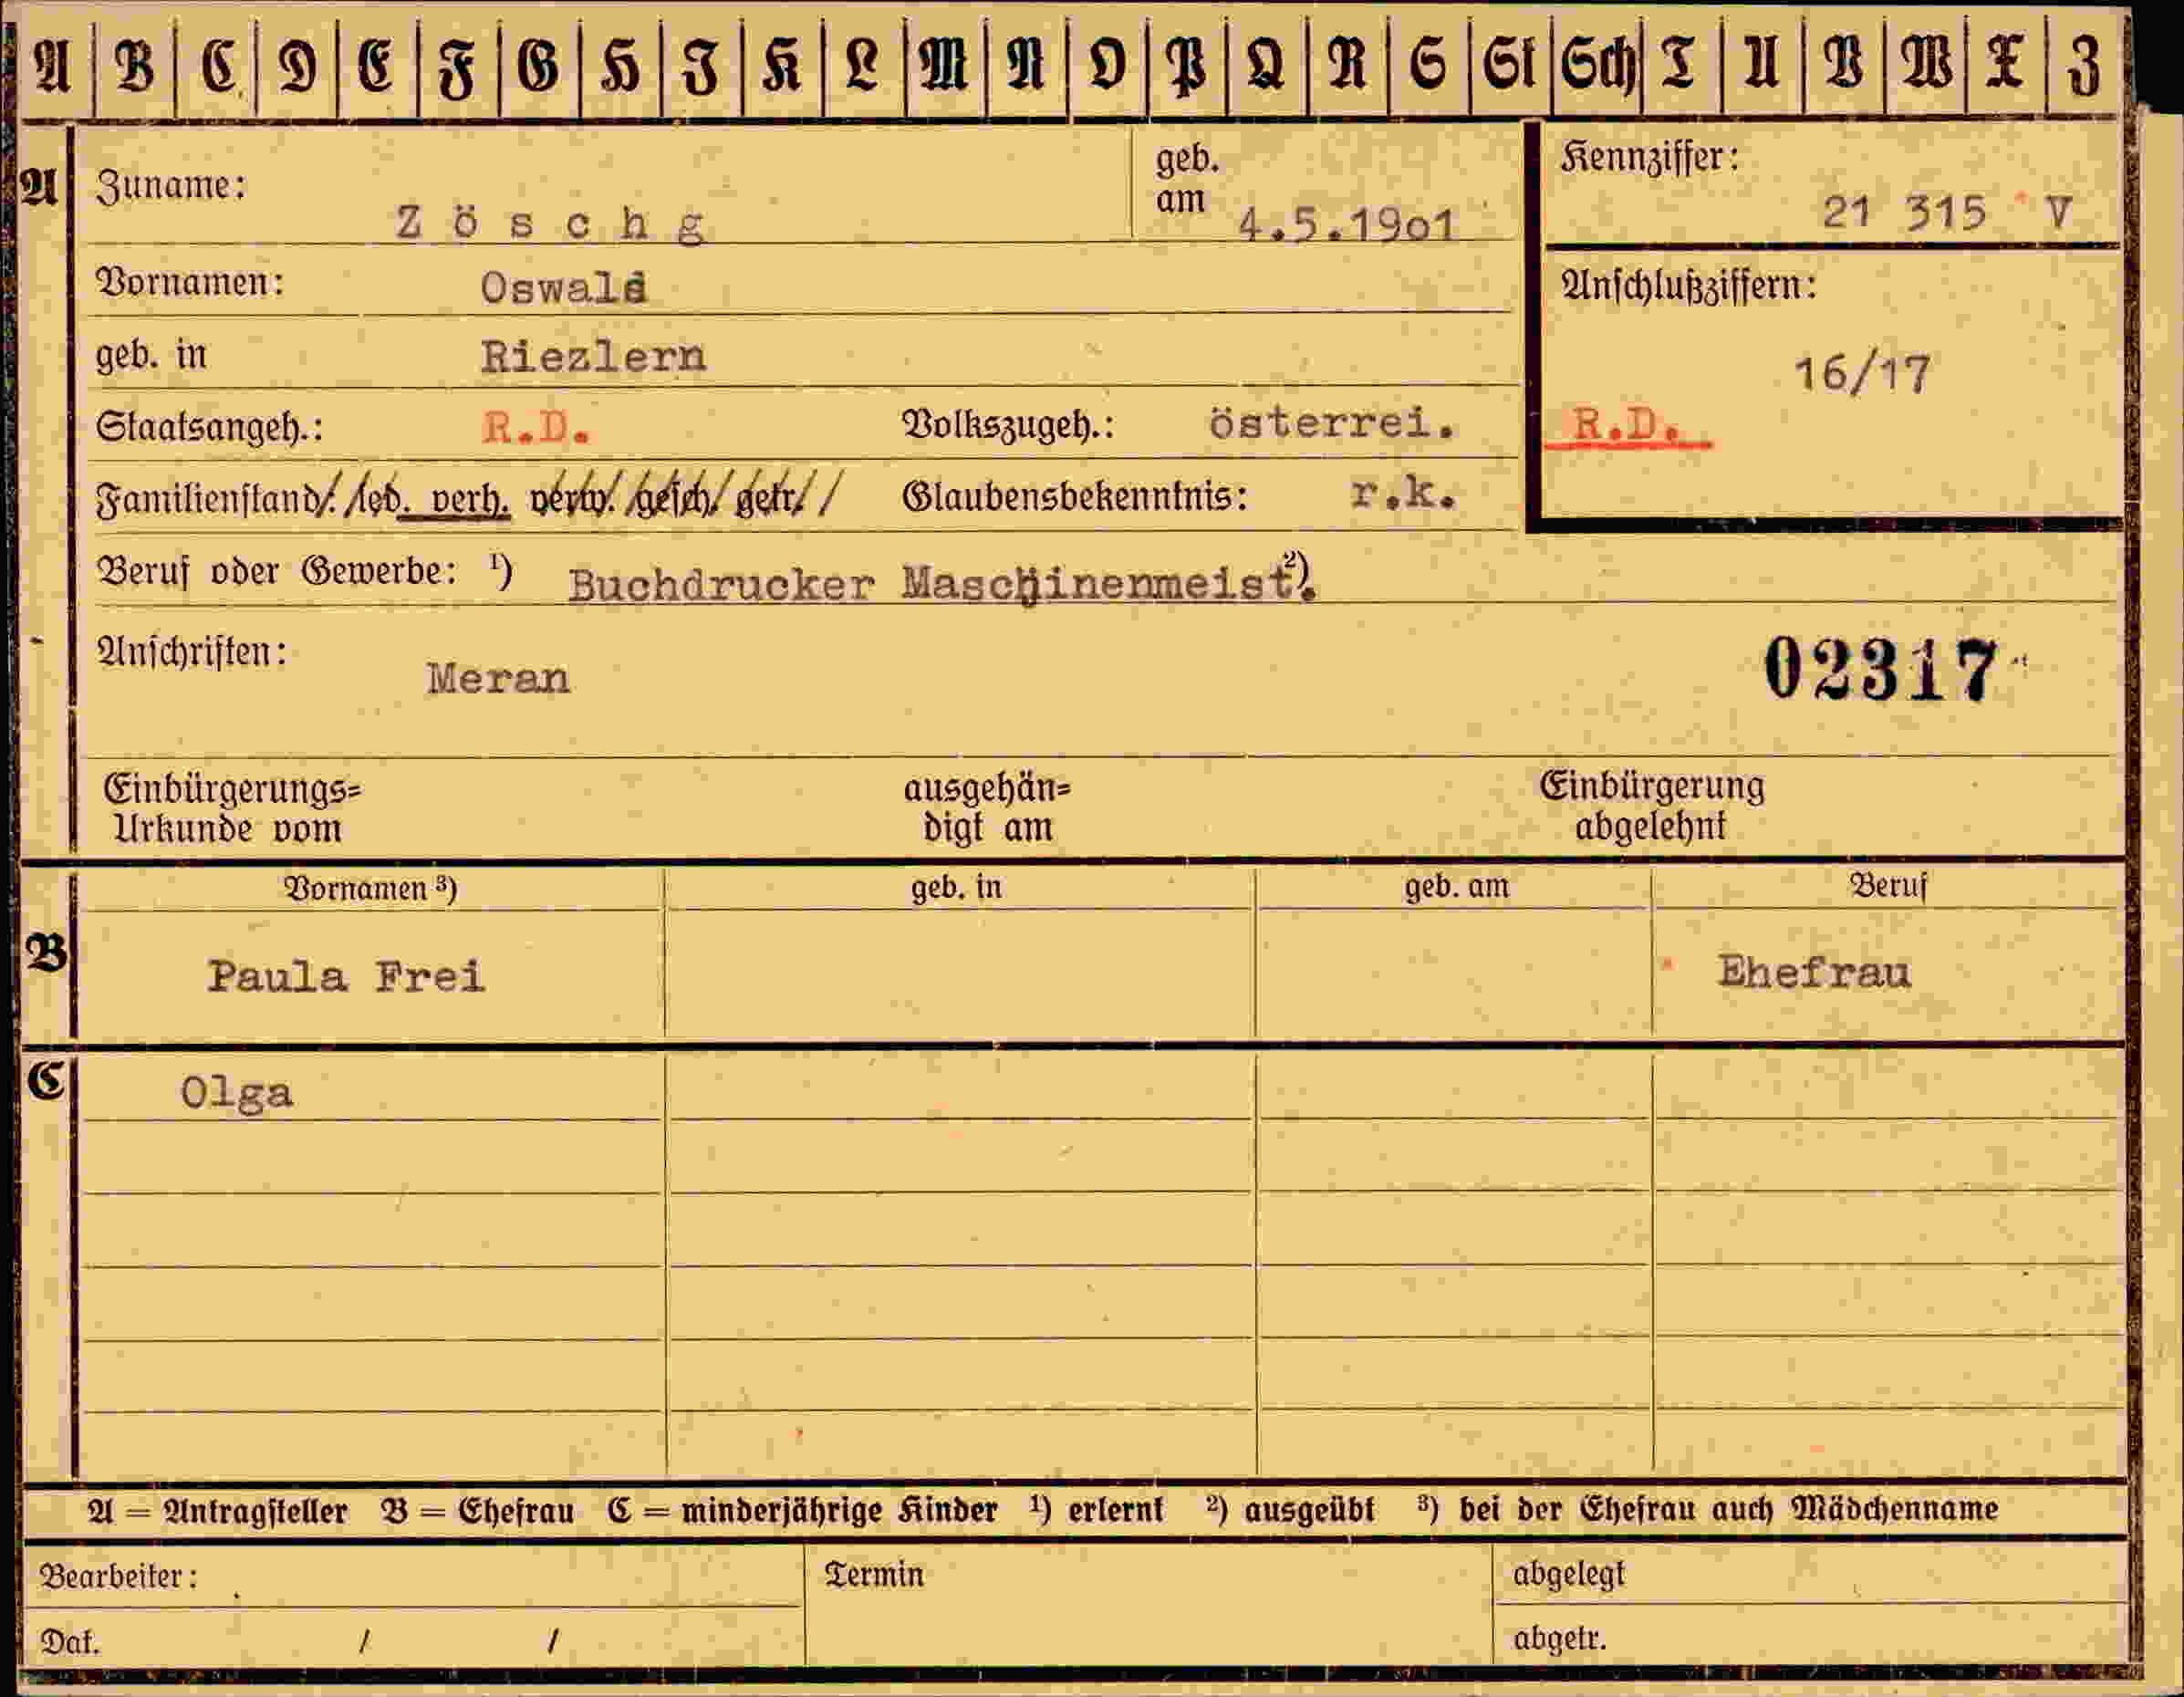 A B C D E F G H I K L M N O P Q R S St Sch T U V W X Z
A Zuname: Zöschg geb. am 4.5.19o1 Kennziffer: 21 315 V
Vornamen: Oswald Anschlußziffern:
geb. in Riezlern 16/17
Staatsangeh.: R.D. Volkszugeh.: österrei. R.D.
Familienstand: led. verh. verw. gesch. getr. Glaubensbekenntnis: r.k.
Beruf oder Gewerbe: ¹) Buchdrucker Maschinenmeist. ²)
Anschriften: Meran 02317
Einbürgerungs= ausgehän= Einbürgerung
Urkunde vom digt am abgelehnt
Vornamen ³) geb. in geb. am Beruf
B Paula Frei Ehefrau
C Olga
A = Antragsteller B = Ehefrau C = minderjährige Kinder ¹) erlernt ²) ausgeübt ³) bei der Ehefrau auch Mädchenname
Bearbeiter: Termin abgelegt
Dat. / / abgetr.